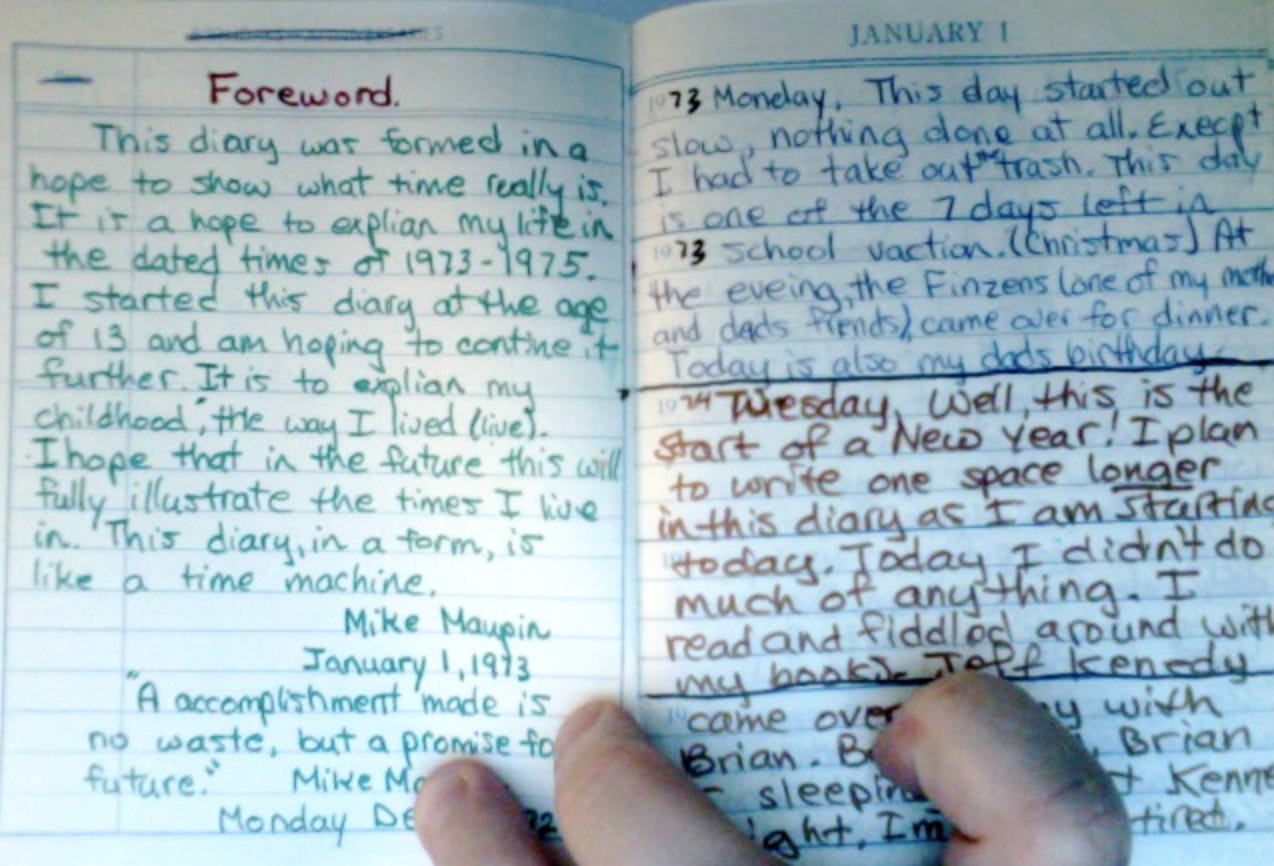 Foreword.
This diary was formed in a
hope to show what time really is.
It is a hope to explian my life in
the dated times of 1973-1975.
I started this diary at the age
of 13 and am hoping to contine it
further. It is to explian my
childhood, the way I lived (live).
I hope that in the future this will
fully illustrate the times I live
in. This diary, in a form, is
like a time machine.
Mike Maupin
January 1, 1973
"A accomplishment made is
no waste, but a promise fo
future." Mike
Monday
JANUARY 1
1973 Monday. This day started out
slow, nothing done at all. Execpt
I had to take out trash. This day
is one of the 7 days left in
1973 School vaction. (Christmas) At
the eveing, the Finzens (one of my
and dads friends), came over for dinner.
Today is also my dads birthday.
1974 Tuesday, Well, this is the
start of a New Year! I plan
to write one space longer
in this diary as I am starting
today. Today I didn't do
much of anything. I
read and fiddled around with
my books. Jeff Kenedy
19 came over with
Brian. Brian
tired.